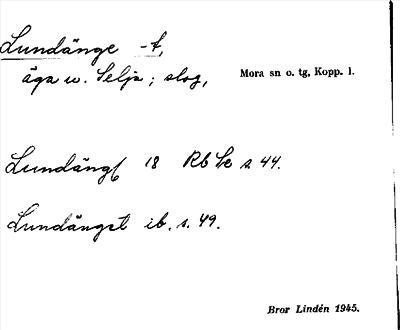 Lundänge -t,
äga u. Selja; slog,
Mora sn o. tg, Kopp. l.
Lundäng 18 Rb Se s. 44.
Lundänget ib. s. 49.
Bror Lindén 1945.